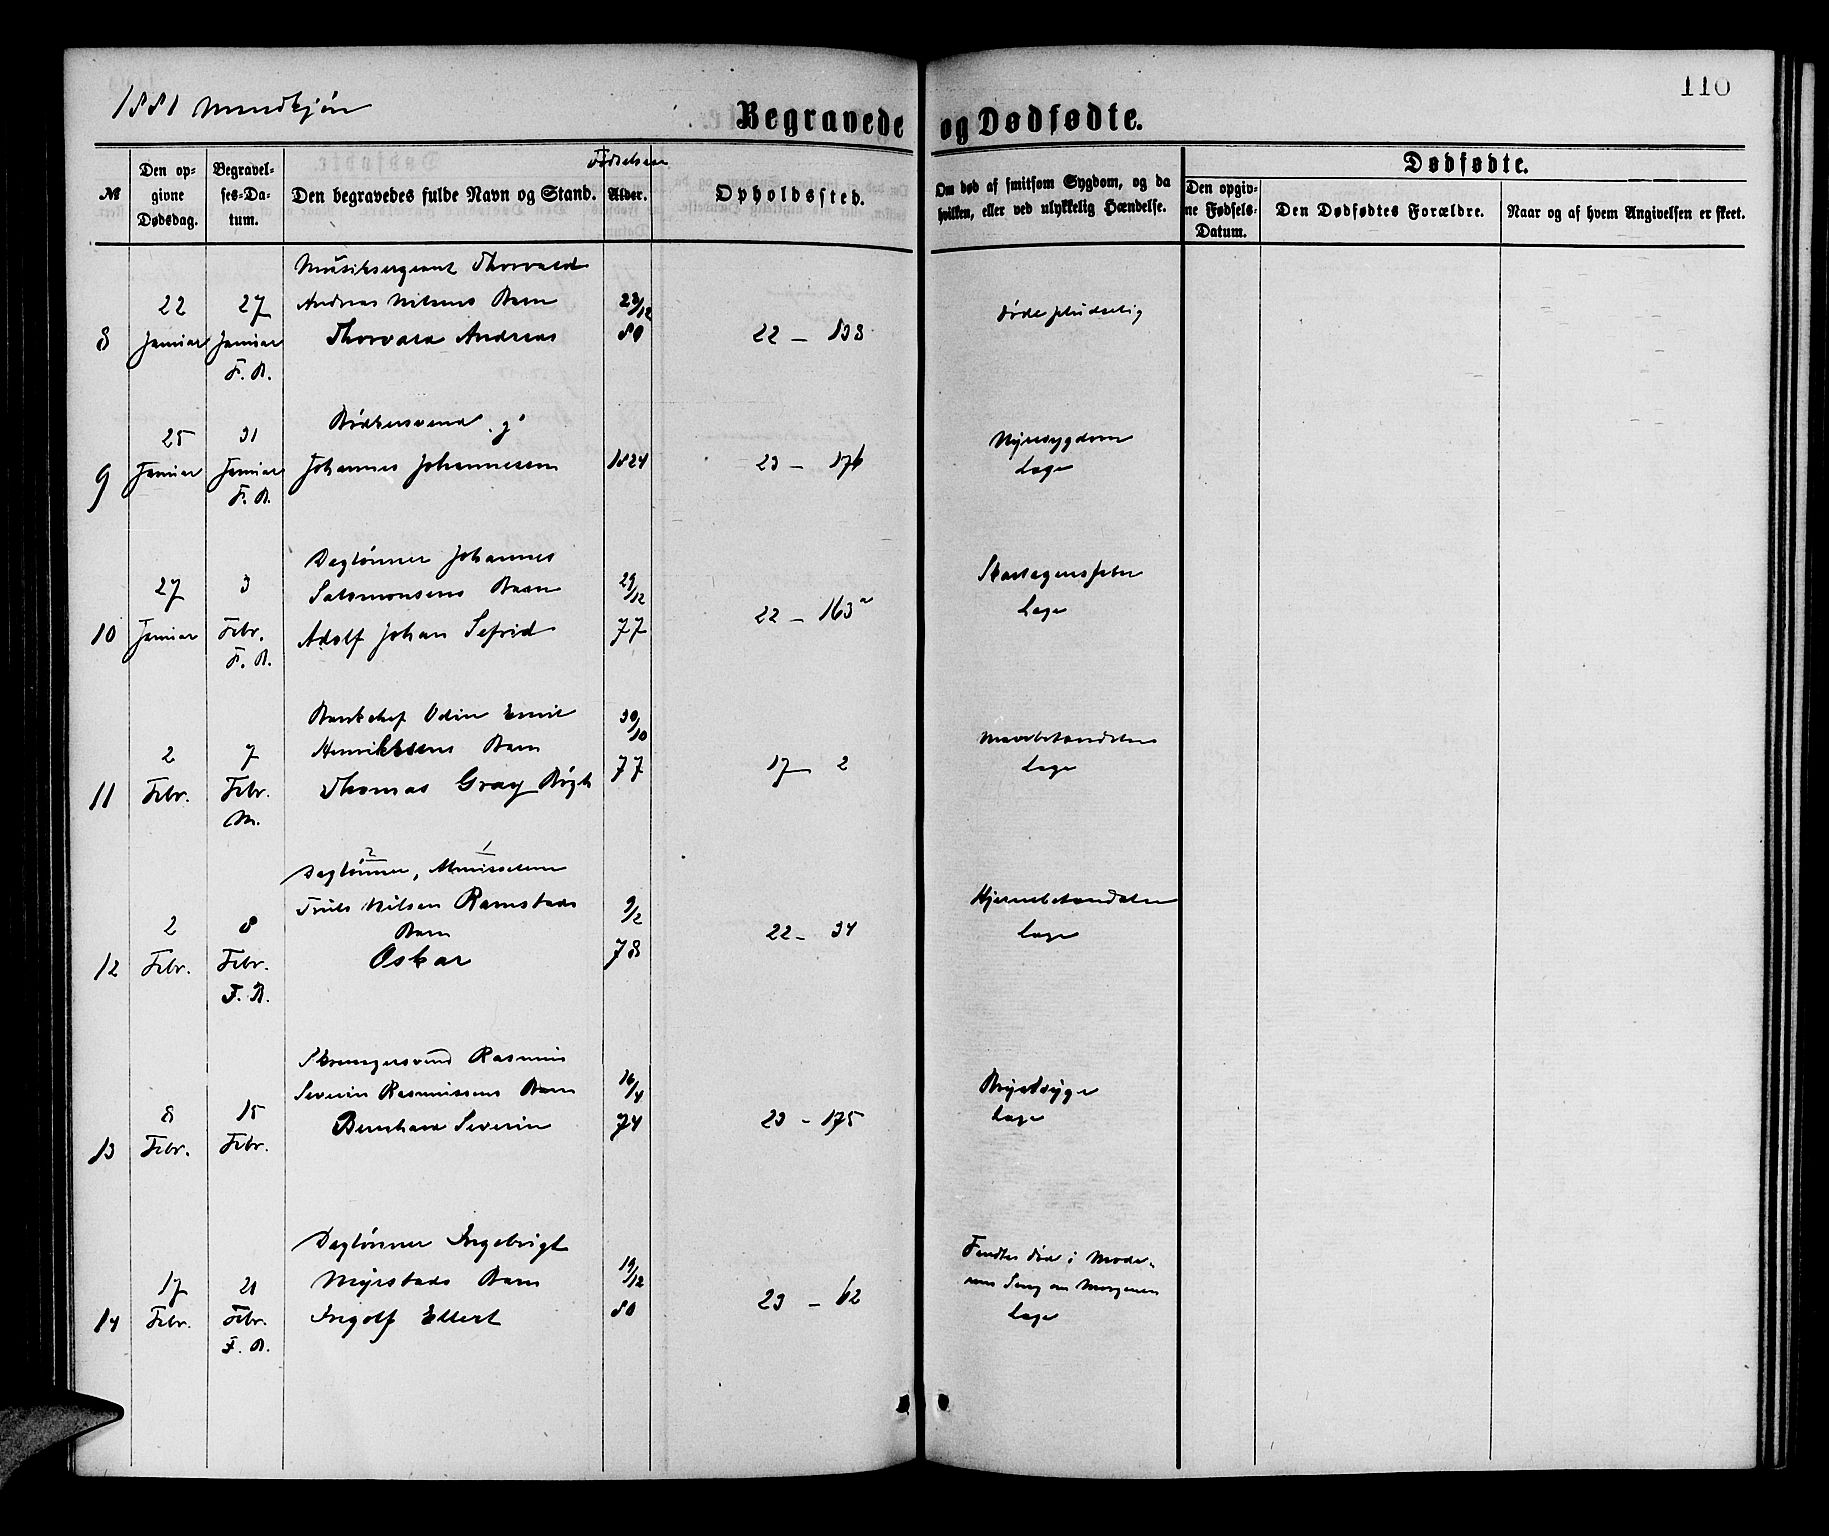 110
1881 Mandkjøn
Begravede og Dødfødte.
№
Den op-
givne
Dødsdag.
Begravel-
ses-Da-
tum.
Den begravedes fulde Navn og Stand.
Fødselsaar
Alder.
Opholdssted.
Om død af smitsom Sygdom, og da
hvilken, eller ved ulykkelig Hændelse.
Dødfødte.
Den opgiv-
ne Fødsels-
Datum.
Den Dødfødtes Forældre.
Naar og af hvem Angivelsen er skeet.
8
22
Januar
27
Januar
F. R.
Musiksergeant Thorvald
Andreas Nilsens Barn
Thorvald Andreas
23/12
80
22 - 138
Døde pludselig
9
25
Januar
31
Januar
F. R.
Bødkersvend g
Johannes Johannesen
1824
23 - 176
Nyresygdom
Læge
10
27
Januar
3
Febr.
F. R.
Daglønner Johannes
Salomonsens Barn
Adolf Johan Sefrid
29/12
77
22 - 163a
Skarlagensfeber
Læge
11
2
Febr.
7
Febr.
M.
Bankchef Odin Emil
Henriksens Barn
Thomas Gray Bøgh
30/10
77
17 - 2
Mavebetændelse
Læge
12
2
Febr.
8
Febr.
F. R.
2 1
Daglønner,
Truls Nilsen Ramstads
Barn
Oskar
9/2
78
22 - 34
Hjernebetændelse
Læge
13
8
Febr.
15
Febr.
Skomagersvend Rasmus
Severin Rasmussens Barn
Bernhard Severin
16/4
74
23 - 175
Brystsyge
Læge
14
17
Febr.
21
Febr.
F. R.
Daglønner Ingebrigt
Myrstads Barn
Ingolf Ellert
19/12
80
23 - 62
Fandtes død i Mode-
rens Seng om Morgenen
Læge